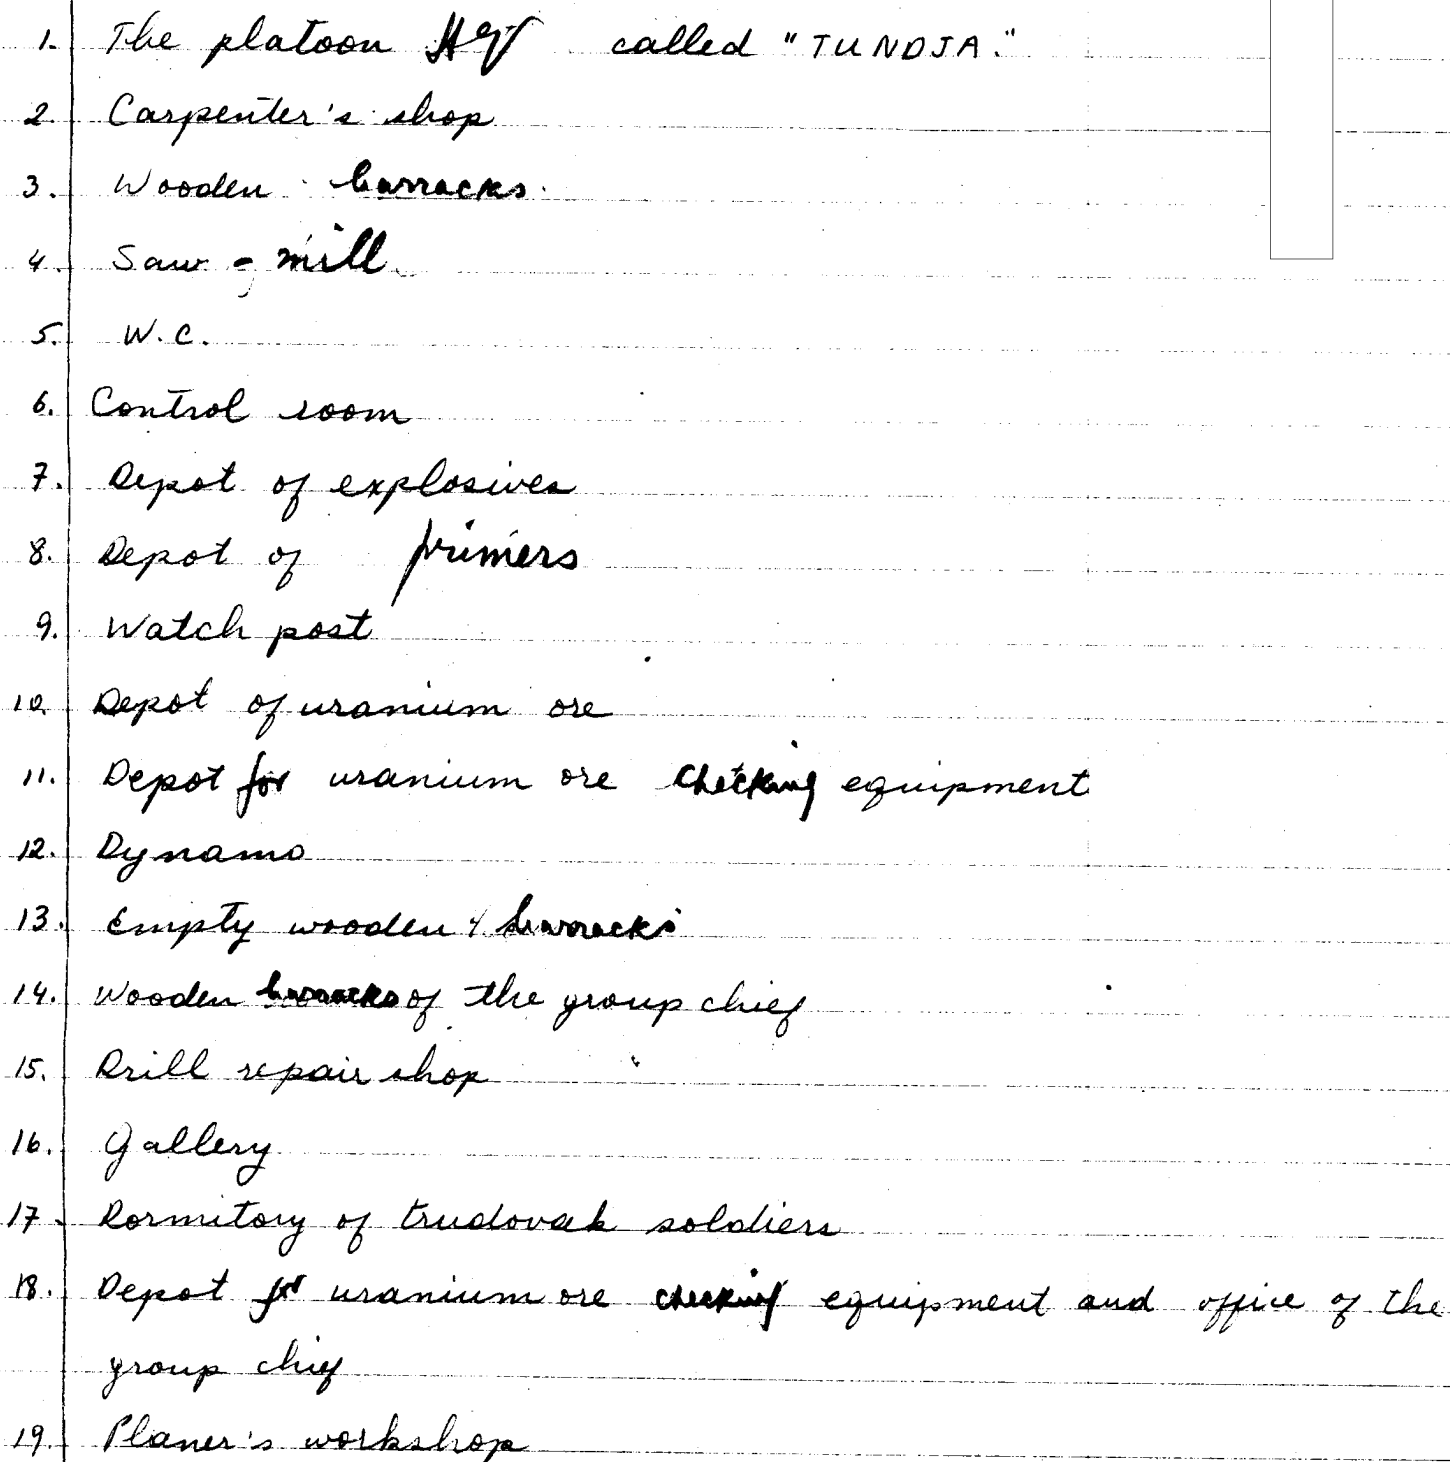 1. The platoon Hqr called "TUNDJA."
2. Carpenter's shop
3. Wooden barracks.
4. Saw-mill
5. W.C.
6. Control room
7. Depot of explosives
8. Depot of primers
9. Watch post
10. Depot of uranium ore
11. Depot for uranium ore checking equipment
12. Dynamo
13. Empty wooden barracks
14. Wooden barracks of the group chief
15. Drill repair shop
16. Gallery
17. Dormitory of trudovak soldiers
18. Depot for uranium ore checking equipment and office of the
group chief
19. Planer's workshop